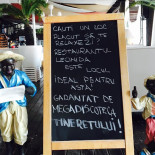 CAUTI UN LOC
PLACUT SĂ TE
RELAXEZI?
RESTAURANTUL
LEONIDA
ESTE LOCUL
IDEAL PENTRU
ASTA!
GARANTAT DE
MEGADISCOTECA
TINERETULUI!